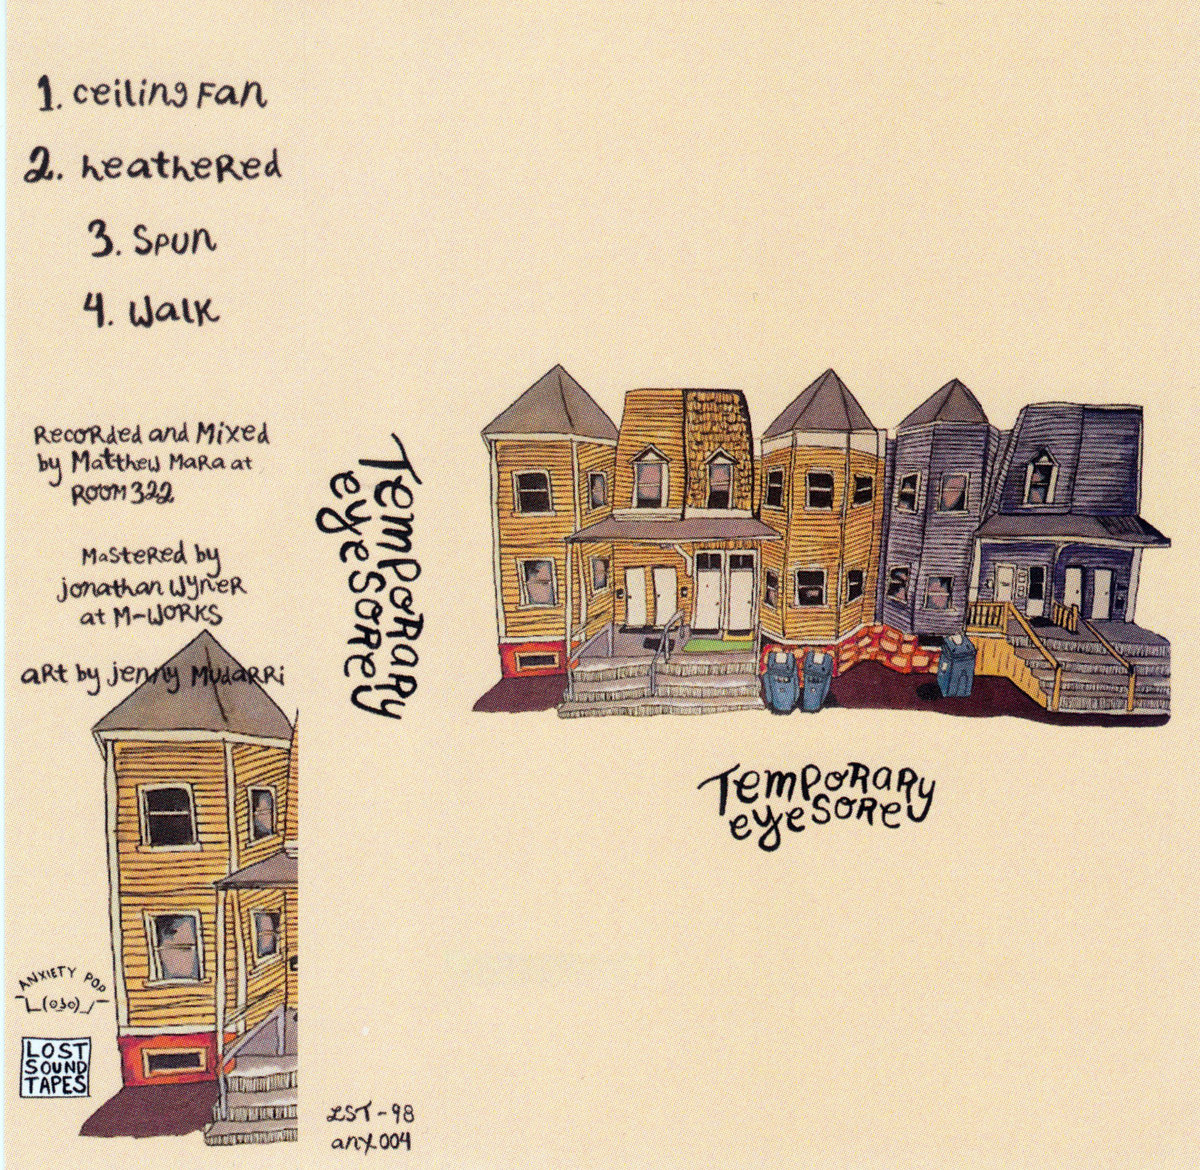 1. Ceiling Fan
2. heathered
3. Spun
4. Walk
Recorded and Mixed
by Matthew Mara at
ROOM 322
Mastered by
Jonathan Wyner
at M-WORKS
art by Jenny Mudarri
ANXIETY POP
¯\_(o͡ʖo)_/¯
LOST
SOUND
TAPES
Temporary
eyesore
LST-98
anx.004
Temporary
eyesore